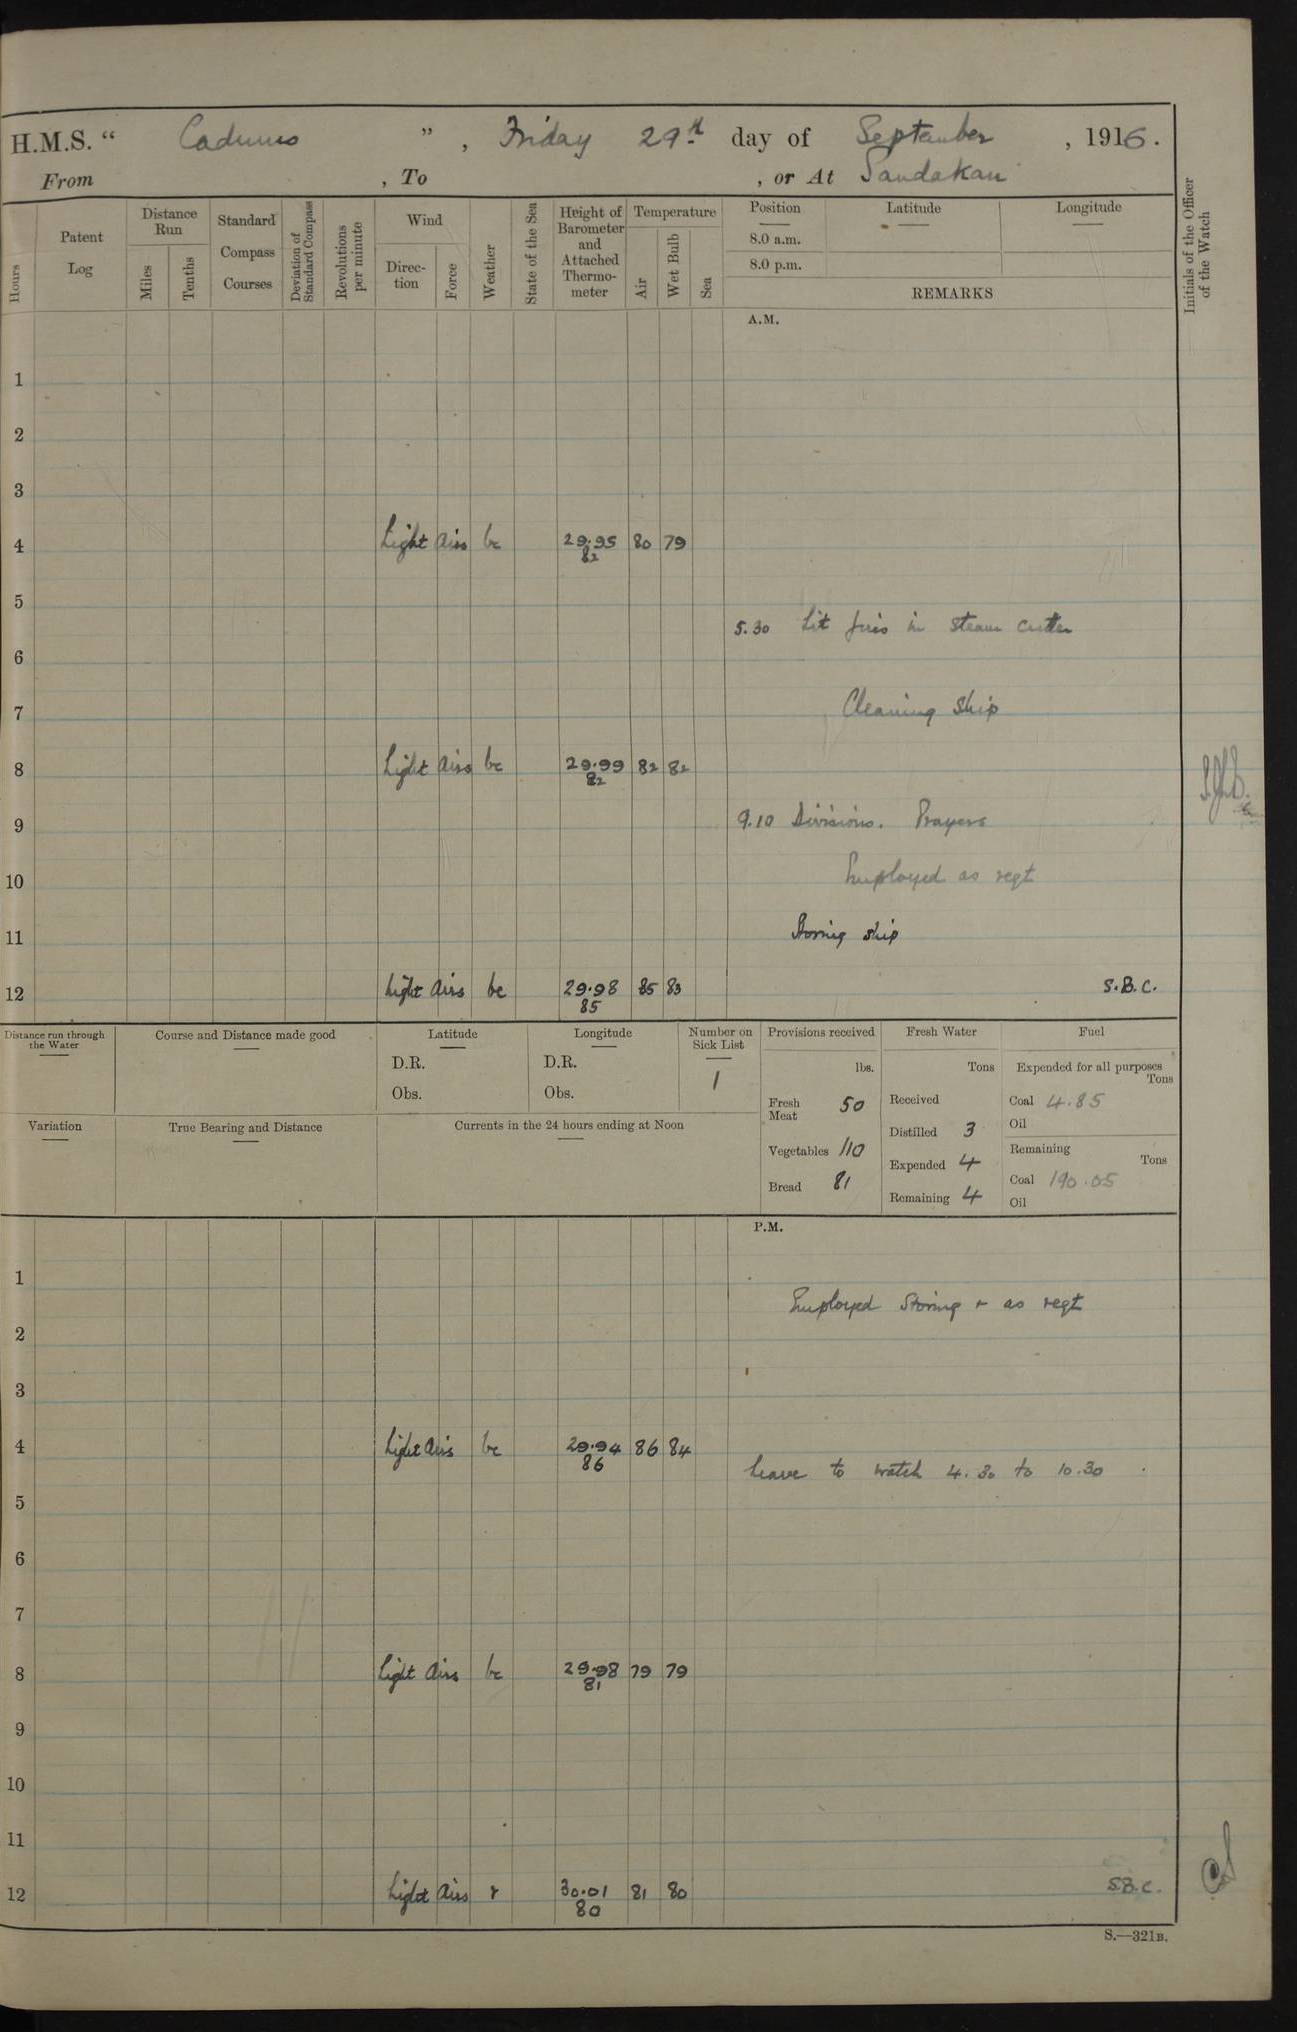 H.M.S. " Cadmus ", Friday 29th day of September, 1916.
From , To , or At Sandakan
Hours
Patent Log
Distance Run
Miles
Tenths
Standard Compass Courses
Deviation of Standard Compass
Revolutions per minute
Wind
Direction
Force
Weather
State of the Sea
Height of Barometer and Attached Thermometer
Temperature
Air
Wet Bulb
Sea
Position Latitude Longitude
8.0 a.m.
8.0 p.m.
REMARKS
Initials of the Officer of the Watch
A.M.
1
2
3
4 Light airs bc 29.95 80 79
82
5
5.30 Lit fires in steam cutter
6
7 Cleaning ship
8 Light airs bc 29.99 82 82
82
9 9.10 Divisions. Prayers
10 Employed as reqt
11 Storing ship
12 Light airs bc 29.98 85 83 S.B.C.
85
Distance run through the Water
Course and Distance made good
Latitude
D.R.
Obs.
Longitude
D.R.
Obs.
Number on Sick List
1
Provisions received
lbs.
Fresh Meat 50
Vegetables 110
Bread 81
Fresh Water
Tons
Received
Distilled 3
Expended 4
Remaining 4
Fuel
Expended for all purposes
Tons
Coal 4.85
Oil
Remaining
Tons
Coal 190.05
Oil
Variation
True Bearing and Distance
Currents in the 24 hours ending at Noon
P.M.
1
Employed storing & as reqt
2
3
4 Light airs bc 29.94 86 84
86
Leave to watch 4.30 to 10.30
5
6
7
8 Light airs bc 29.98 79 79
81
9
10
11
12 Light airs r 30.01 81 80 S.B.C.
80
S.—321B.